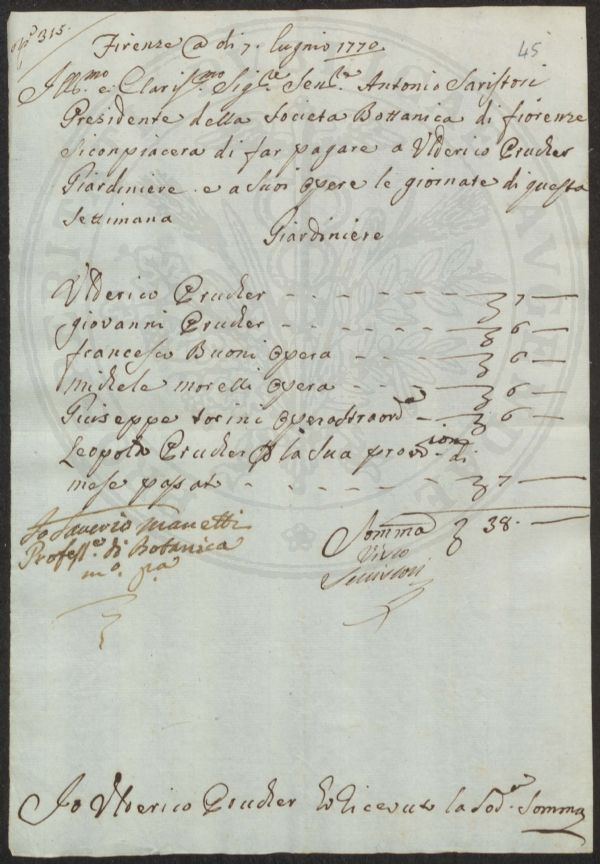 315.
45
Firenze @ di 7. Lugnio 1770
Ill.mo e Claris.mo Sig.re Sen.re Antonio Saristori
Presidente della Societa Bottanica di fiorenze
Siconpiacera di far pagare a Vlderico Prucher
Giardiniere e a Suoi Opere le giornate di questa
Settimana
Giardiniere
Vlderico Prucher - - - - - - - 7 —
giovanni Prucher - - - - - - 6 —
francesco Buoni Opera - - - - 6 —
michele morelli Opera - - - - 6 —
Giuseppe torini Opera straord.a - 6 —
Leopoldo Prucher p la Sua provisione di
mese pasato - - - - - - - 7 —
Somma 38. —
Io Saverio Manetti
Profess.e di Botanica
m.o p.a
Visto
Io Vlderico Prucher ho Ricevuto la Sod.a Somma